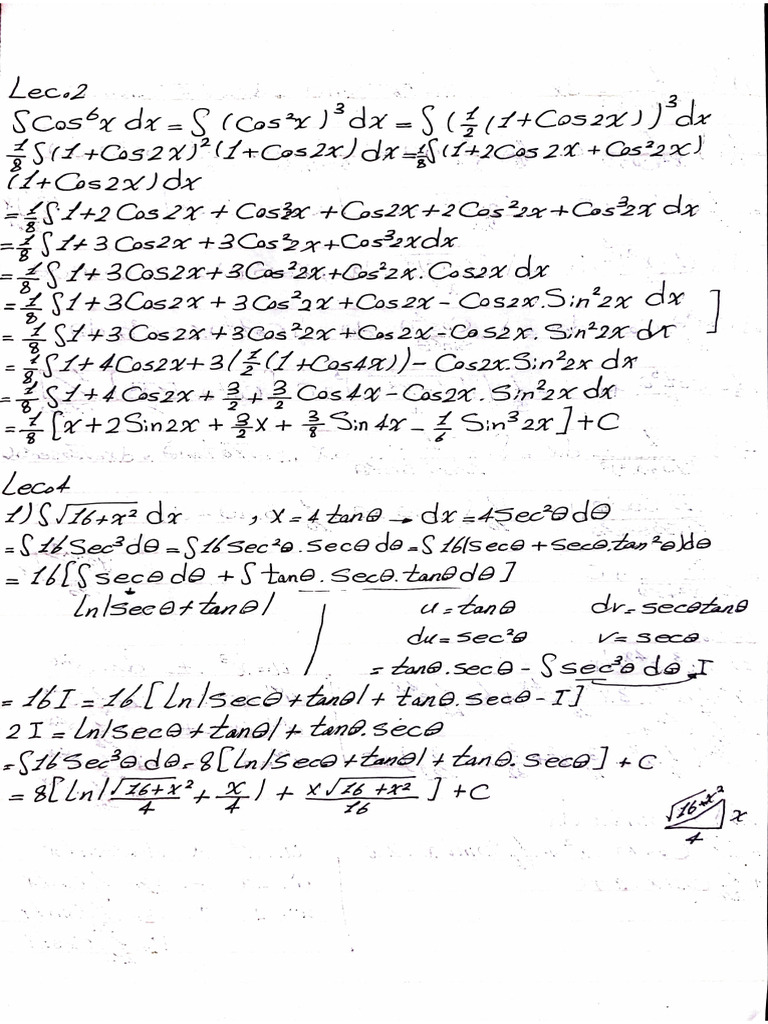 Lec.2
∫Cos⁶x dx = ∫ (Cos²x)³ dx = ∫ (1/2 (1+Cos2x))³ dx
1/8 ∫(1+Cos2x)²(1+Cos2x) dx = 1/8 ∫(1+2Cos2x + Cos²2x)
(1+Cos2x) dx
= 1/8 ∫ 1+2Cos2x + Cos²2x + Cos2x + 2Cos²2x + Cos³2x dx
= 1/8 ∫ 1+3Cos2x + 3Cos²2x + Cos³2x dx
= 1/8 ∫ 1+3Cos2x + 3Cos²2x + Cos²2x.Cos2x dx
= 1/8 ∫ 1+3Cos2x + 3Cos²2x + Cos2x - Cos2x.Sin²2x dx ]
= 1/8 ∫ 1+3Cos2x + 3Cos²2x + Cos2x - Cos2x.Sin²2x dx
= 1/8 ∫ 1+4Cos2x + 3(1/2 (1+Cos4x)) - Cos2x.Sin²2x dx
= 1/8 ∫ 1+4Cos2x + 3/2 + 3/2 Cos4x - Cos2x.Sin²2x dx
= 1/8 [x+2Sin2x + 3/2 x + 3/8 Sin4x - 1/6 Sin³2x] + C
Lec.4
1) ∫√16+x² dx , x = 4tanθ → dx = 4Sec²θdθ
= ∫16Sec³dθ = ∫16sec²θ.secθdθ = ∫16(secθ + secθ.tan²θ)dθ
= 16[∫secθdθ + ∫tanθ.secθ.tanθdθ]
ln|secθ+tanθ| u = tanθ dv = secθtanθ
du = sec²θ v = secθ
= tanθ.secθ - ∫sec³θdθ I
= 16I = 16[ln|secθ+tanθ| + tanθ.secθ - I]
2I = ln|secθ+tanθ| + tanθ.secθ
= ∫16sec³θdθ = 8[ln|Secθ+tanθ| + tanθ.secθ] + C
= 8[ln|√16+x²/4 + x/4| + x√16+x²/16] + C
√16+x² x
4